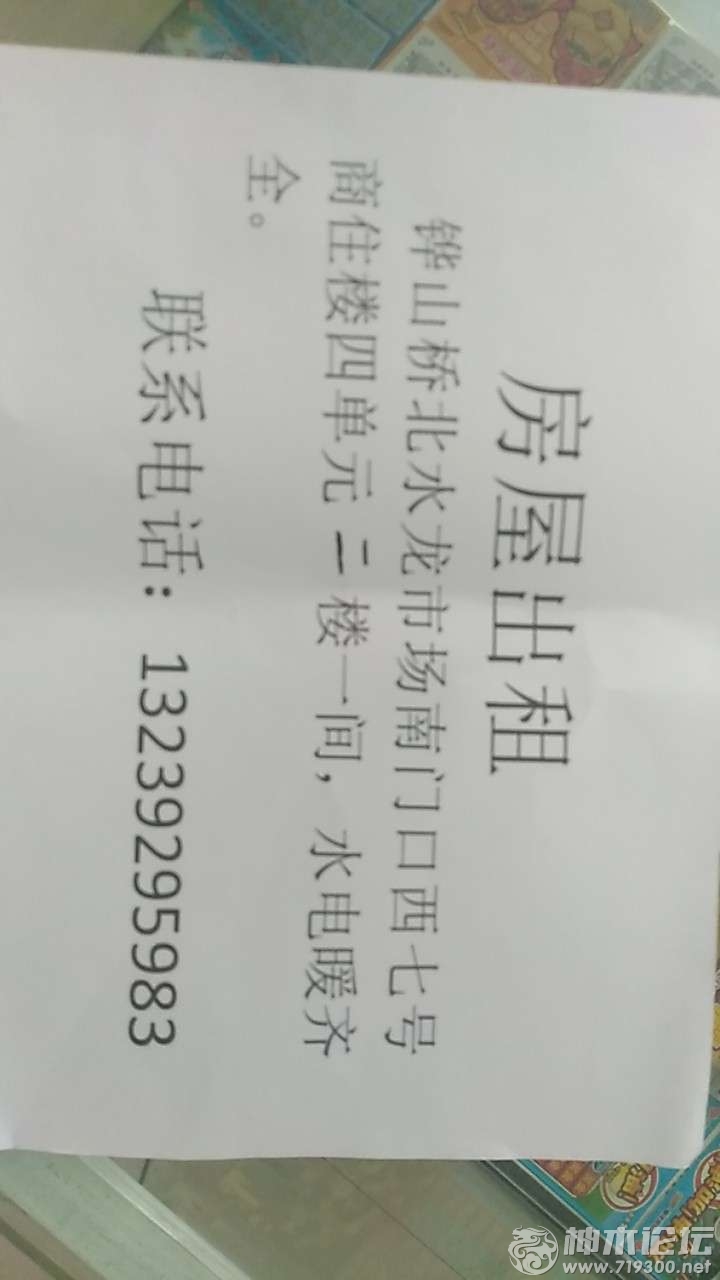 房屋出租
铧山桥北水龙市场南门口西七号
商住楼四单元二楼一间，水电暖齐
全。
联系电话：13239295983
神木论坛
www.719300.net